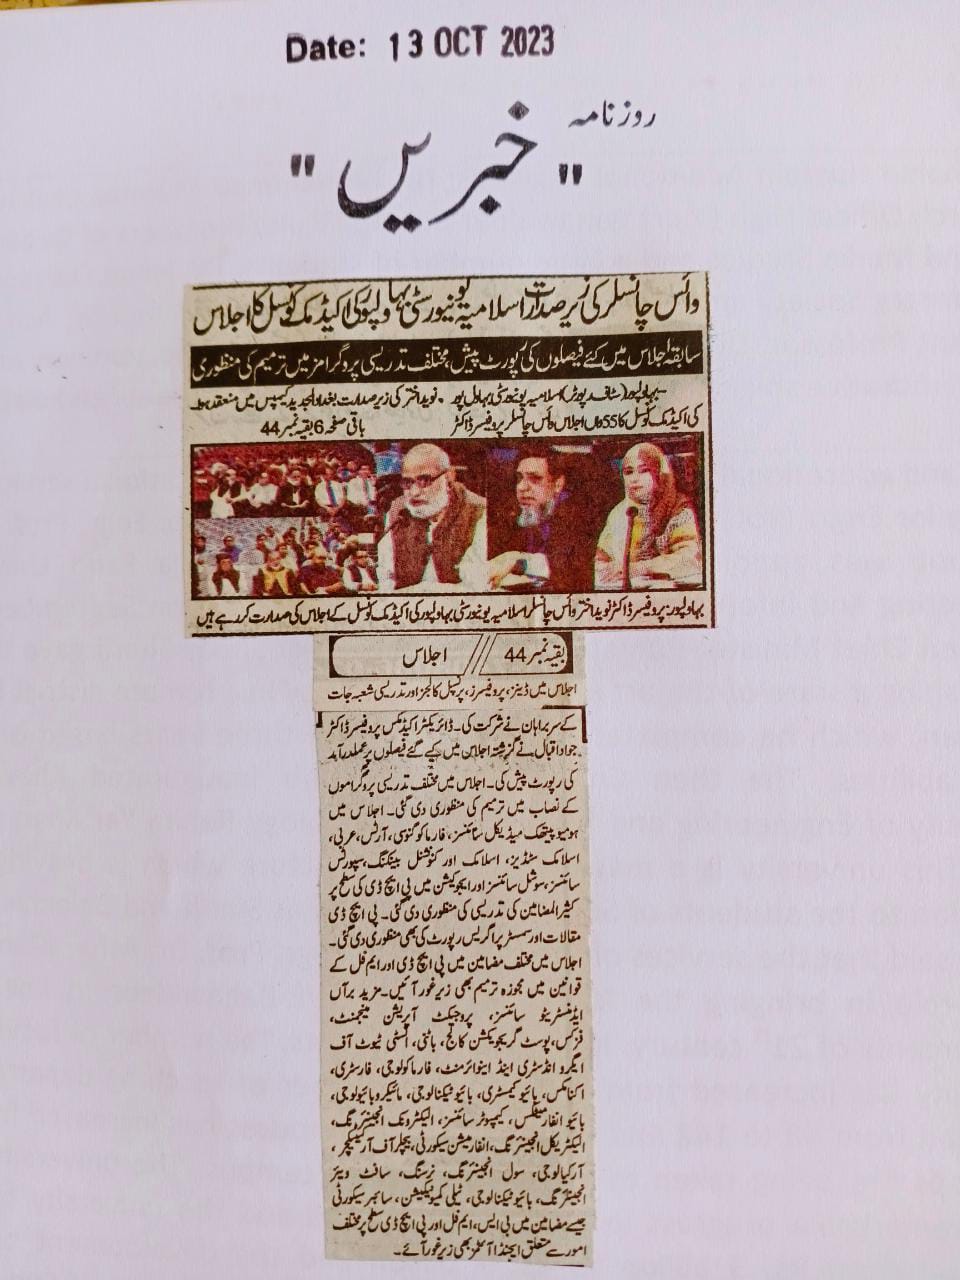 Date: 13 OCT 2023
روزنامہ
"خبریں"
وائس چانسلر کی زیر صدارت اسلامیہ یونیورسٹی بہاولپور کی اکیڈمک کونسل کا اجلاس
سابقہ اجلاس میں کئے فیصلوں کی رپورٹ پیش، مختلف تدریسی پروگرامز میں ترمیم کی منظوری
بہاولپور (سٹاف رپورٹر) اسلامیہ یونیورسٹی بہاول پور
کی اکیڈمک کونسل کا 55واں اجلاس وائس چانسلر پروفیسر ڈاکٹر
نوید اختر کی زیر صدارت بغداد الجدید کیمپس میں منعقد ہوا۔
باقی صفحہ 6 بقیہ نمبر 44
بہاولپور: پروفیسر ڈاکٹر نوید اختر وائس چانسلر اسلامیہ یونیورسٹی بہاولپور کی اکیڈمک کونسل کے اجلاس کی صدارت کر رہے ہیں
بقیہ نمبر 44 // اجلاس
اجلاس میں ڈینز، پروفیسرز، پرنسپل کالجز اور تدریسی شعبہ جات
کے سربراہان نے شرکت کی۔ ڈائریکٹر اکیڈمکس پروفیسر ڈاکٹر
جواد اقبال نے گزشتہ اجلاس میں کیے گئے فیصلوں پر عملدرآمد
کی رپورٹ پیش کی۔ اجلاس میں مختلف تدریسی پروگراموں
کے نصاب میں ترمیم کی منظوری دی گئی۔ اجلاس میں
ہومیو پیتھک میڈیکل سائنسز، فارماکوگنوسی، آرٹس، عربی،
اسلامک سٹڈیز، اسلامک اور کنونشنل بینکنگ، سپورٹس
سائنسز، سوشل سائنسز اور ایجوکیشن میں پی ایچ ڈی کی سطح پر
کثیر المضامین کی تدریسی کی منظوری دی گئی۔ پی ایچ ڈی
مقالات اور سمسٹر پراگریس رپورٹ کی بھی منظوری دی گئی۔
اجلاس میں مختلف مضامین میں پی ایچ ڈی اور ایم فل کے
قوانین میں مجوزہ ترمیم بھی زیر غور آئیں۔ مزید برآں
ایڈمنسٹریٹو سائنسز، پروجیکٹ آپریشن مینجمنٹ،
فزکس، پوسٹ گریجویکشن کالج، باٹنی، انسٹی ٹیوٹ آف
ایگرو انڈسٹری اینڈ اینوائرمنٹ، فارماکولوجی، فارسٹری،
اکنامکس، بائیو کیمسٹری، بائیو ٹیکنالوجی، مائیکروبائیولوجی،
بائیو انفارمیٹکس، کمپیوٹر سائنسز، الیکٹرونک انجینئرنگ،
الیکٹریکل انجینئرنگ، انفارمیشن سیکورٹی، بیچلر آف آرکیٹیکچر،
آرکیالوجی، سول انجینئرنگ، نرسنگ، سافٹ ویئر
انجینئرنگ، بائیو ٹیکنالوجی، ٹیلی کمیونیکیشن، سائبر سیکورٹی
جیسے مضامین میں بی ایس، ایم فل اور پی ایچ ڈی سطح پر مختلف
امور سے متعلق ایجنڈا آئٹمز بھی زیر غور آئے۔